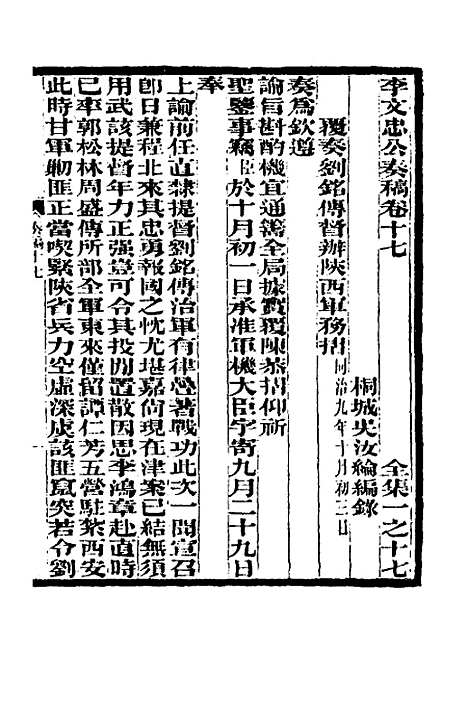 李文忠公奏稿卷十七　全集一之十七
桐城吳汝綸編錄
覆奏劉銘傳督辦陝西軍務摺同治九年十月初三日
奏爲欽遵
諭旨斟酌機宜通籌全局據實覆陳恭摺仰祈
聖鑒事竊臣於十月初一日承准軍機大臣字寄九月二十九日
奉
上諭前任直隸提督劉銘傳治軍有律疊著戰功此次一聞宣召
卽日兼程北來其忠勇報國之忱尤堪嘉尚現在津案已結無須
用武該提督年力正强豈可令其投閒置散因思李鴻章赴直時
已率郭松林周盛傳所部全軍東來僅留譚仁芳五營駐紮西安
此時甘軍勦匪正當喫緊陝省兵力空虛深虞該匪竄突若令劉
奏稿十七
一